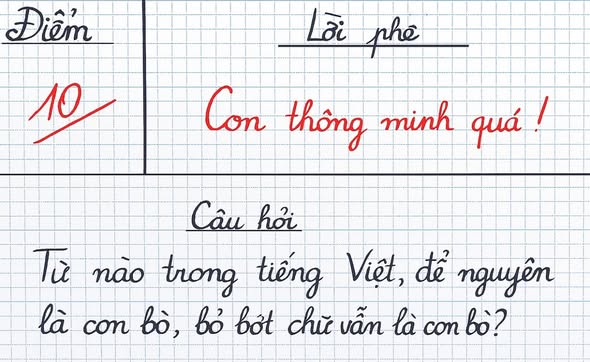 Điểm
Lời phê
10
Con thông minh quá!
Câu hỏi
Từ nào trong tiếng Việt, để nguyên
là con bò, bỏ bớt chữ vẫn là con bò?